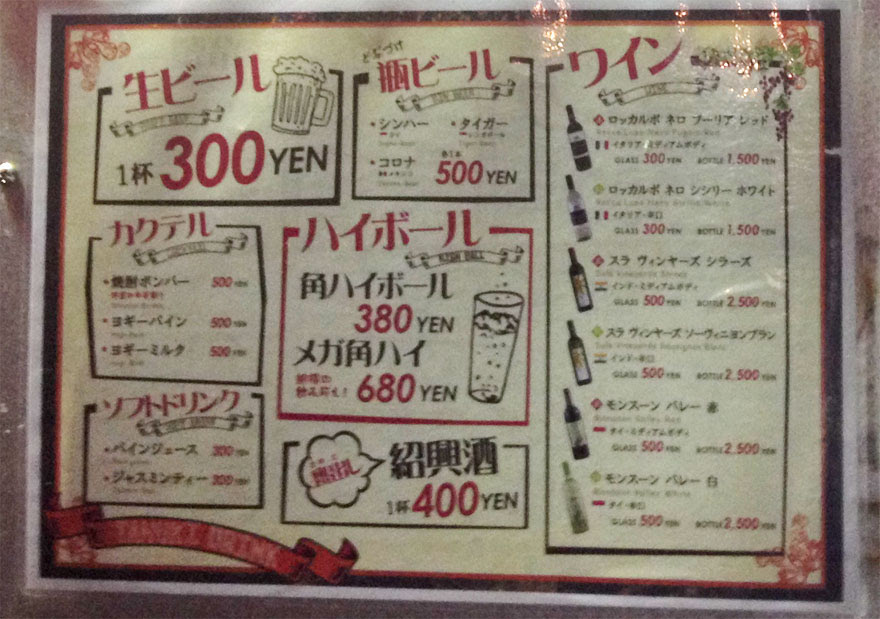 生ビール
1杯 300 YEN
どるづけ
瓶ビール
・シンハー
・タイガー
・コロナ
各1本
500 YEN
カクテル
・焼酎ボンバー 500 YEN
・ヨギーパイン 500 YEN
・ヨギーミルク 500 YEN
ハイボール
HIGH BALL
角ハイボール
380 YEN
メガ角ハイ
680 YEN
ソフトドリンク
・パインジュース 300 YEN
・ジャスミンティー 300 YEN
紹興酒
1杯 400 YEN
ワイン
WINE
ロッカルボ ネロ プーリア レッド
イタリア・ミディアムボディ
GLASS 300 YEN BOTTLE 1,500 YEN
ロッカルボ ネロ シシリー ホワイト
イタリア・辛口
GLASS 300 YEN BOTTLE 1,500 YEN
スラ ヴィンヤーズ シラーズ
Sula Vineyards Shiraz
インド・ミディアムボディ
GLASS 500 YEN BOTTLE 2,500 YEN
スラ ヴィンヤーズ ソーヴィニヨンブラン
Sula Vineyards Sauvignon Blanc
インド・辛口
GLASS 500 YEN BOTTLE 2,500 YEN
モンスーン バレー 赤
Monsoon Valley Red
タイ・ミディアムボディ
GLASS 500 YEN BOTTLE 2,500 YEN
モンスーン バレー 白
Monsoon Valley White
タイ・辛口
GLASS 500 YEN BOTTLE 2,500 YEN